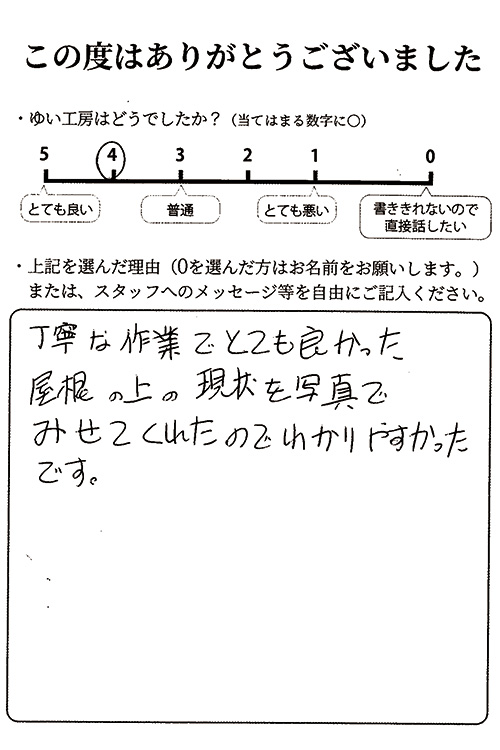 この度はありがとうございました
・ゆい工房はどうでしたか？（当てはまる数字に〇）
5 4 3 2 1 0
とても良い 普通 とても悪い 書ききれないので
直接話したい
・上記を選んだ理由（0を選んだ方はお名前をお願いします。）
または、スタッフへのメッセージ等を自由にご記入ください。
丁寧な作業でとても良かった
屋根の上の現状を写真で
みせてくれたのでわかりやすかった
です。